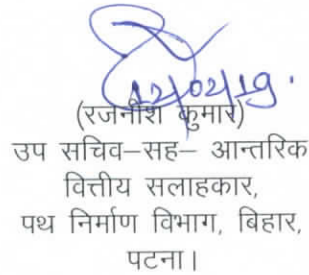 12/02/19.
(रजनीश कुमार)
उप सचिव–सह– आन्तरिक
वित्तीय सलाहकार,
पथ निर्माण विभाग, बिहार,
पटना।